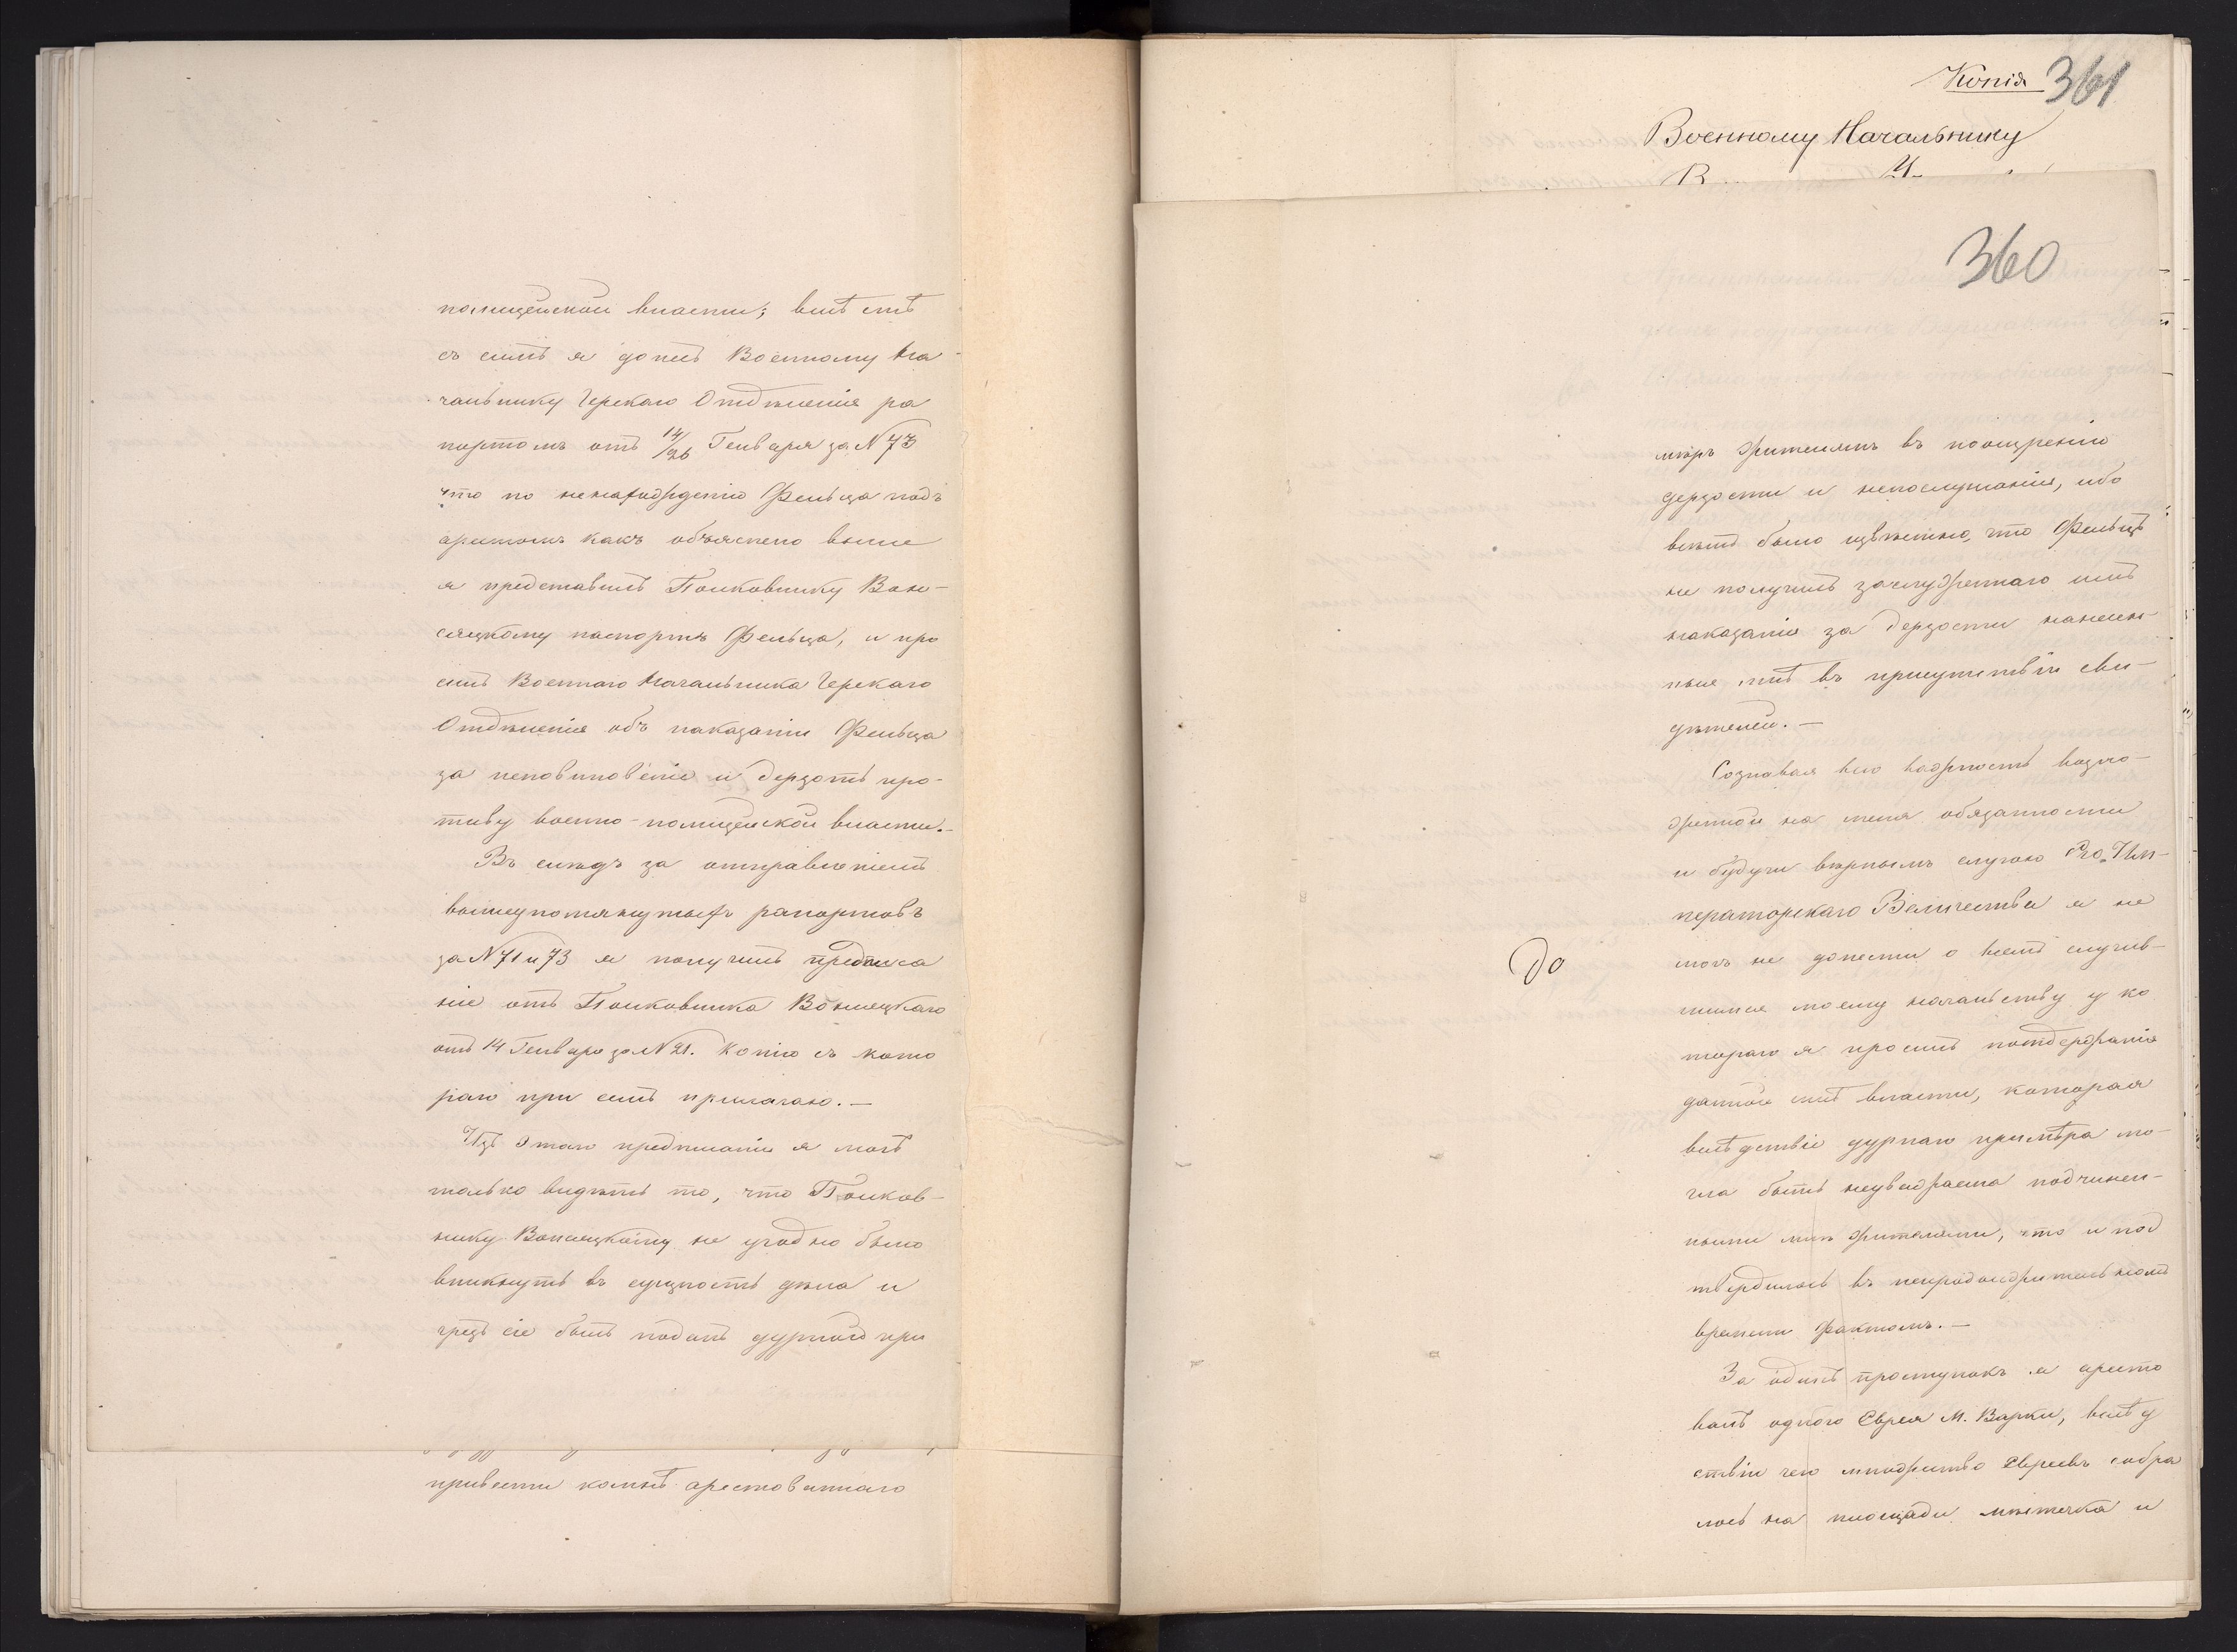 полицейской власти; вмѣстѣ
съ симъ я донёсъ Военному На-
чальнику Герскаго Отдѣленія ра
портомъ отъ 14/26 Генваря за N 73
что по ненахожденію Фельца подъ
арестомъ какъ объяснено выше
я представилъ Полковнику Воню-
сяцкому паспортъ Фельца, и про
силъ Военнаго Начальника Герскаго
Отдѣленія объ наказаніи Фельца
за неповиновеніе и дерзость про-
тиву военно-полицейской власти.-
Въ слѣдъ за отправленіемъ
вышеупомянутыхъ рапортовъ
за N 71 и 73 я получилъ предписа
ніе отъ Полковника Вонсяцкаго
отъ 14 Генваря за N 21. Копію съ кото
раго при семъ прилагаю. —
Изъ этаго предписанія я могъ
только видѣть то, что Полков-
нику Вонсяцкому не угодно было
вникнуть въ сущность дѣла и
чрезъ сіе былъ поданъ дурной при
привести комнѣ арестованнаго
Копія 361
Военному Начальнику
360
мѣръ жителямъ въ поощреніи
дерзости и непослушанія, ибо
всѣмъ было извѣстно, что Фельцъ
не получилъ заслуженнаго имъ
наказанія за дерзости нанесен-
ные мнѣ въ присутствіи сви-
дѣтелей. —
Сознавая всю важность возло-
женной на меня обязанности
и будучи вѣрнымъ слугою Его Им-
ператорскаго Величества я не
могъ не донести о всемъ случив-
До
шимся моему начальству у ко
тораго я просилъ поддержанія
данной мнѣ власти, которая
вслѣдствіе дурнаго примѣра мо-
гла быть неуважаема подчинен-
ными мнѣ жителями, что и под
твердилось въ непродолжительномъ
времени фактомъ. —
За одинъ проступокъ я аресто
валъ одного Еврея М. Варки, вслѣд
ствіи чего множество Евреевъ собра
лось на площади мѣстечка и